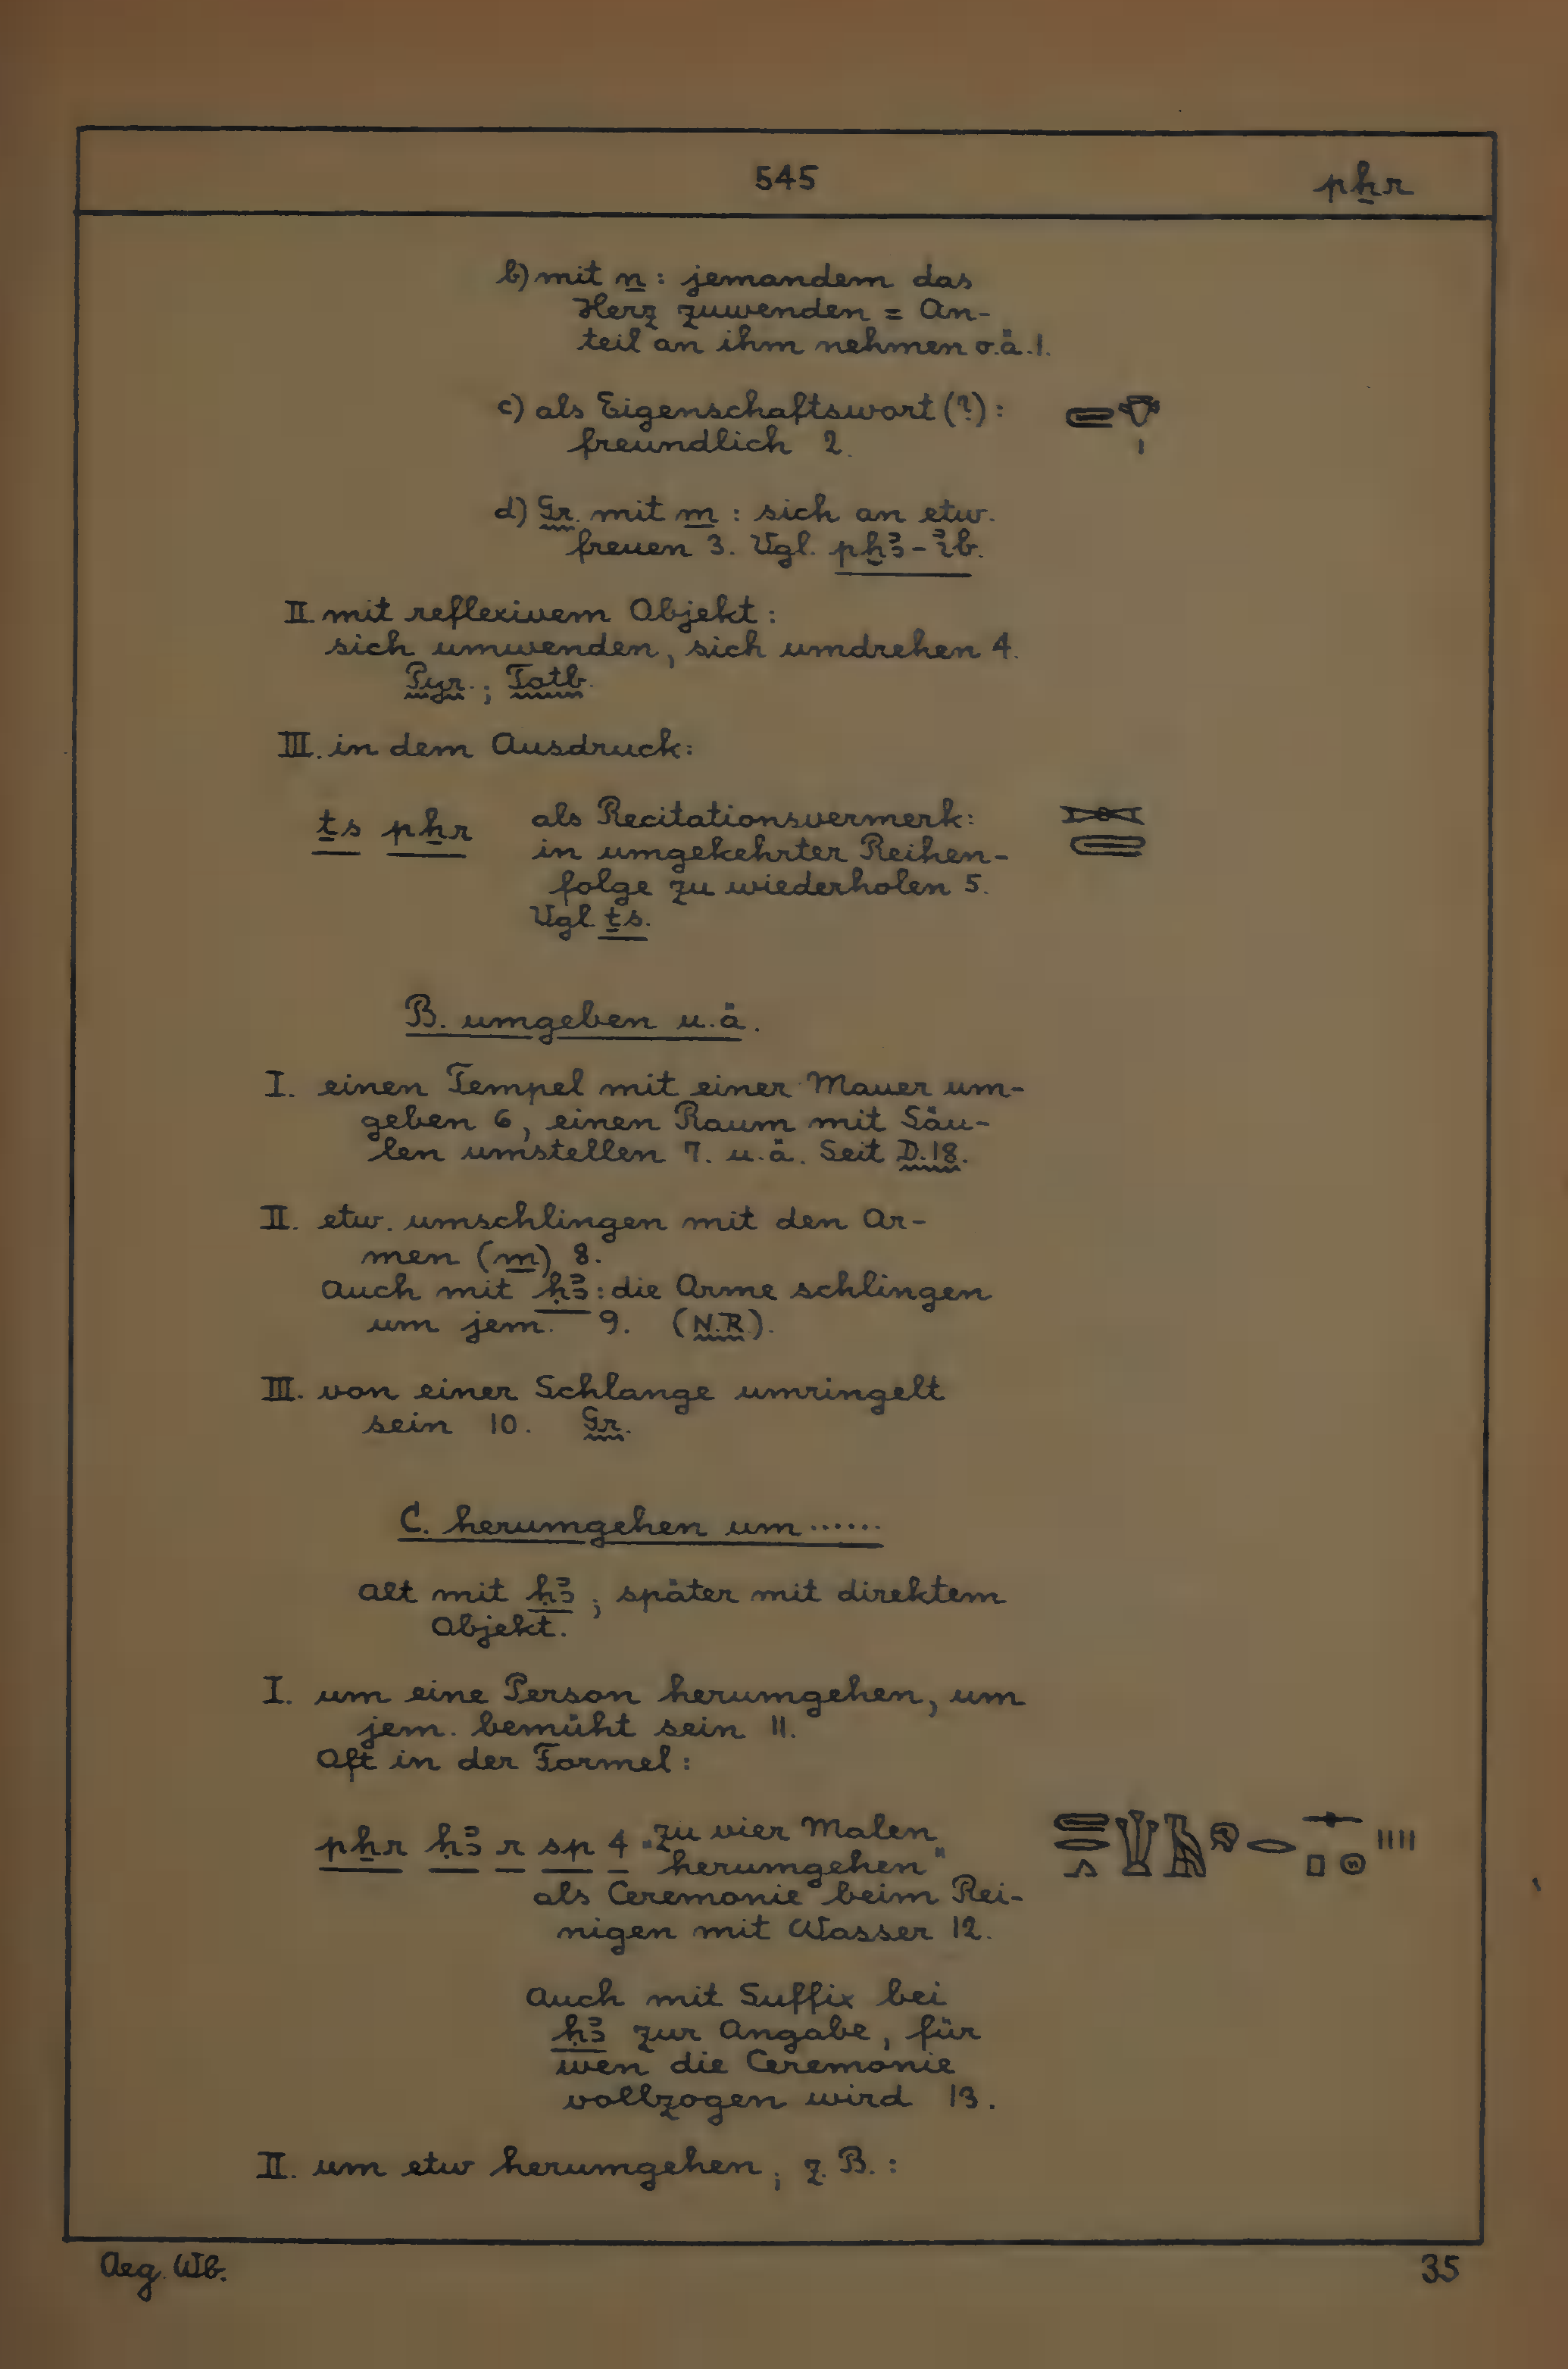 545
pẖr
b) mit n : jemandem das
Herz zuwenden = An-
teil an ihm nehmen o.ä. 1.
c) als Eigenschaftswort (?) : 𓄲𓄣𓏤
freundlich 2.
d) Gr. mit m : sich an etw.
freuen 3. Vgl. pẖꜣ-ꞽb.
II. mit reflexivem Objekt :
sich umwenden, sich umdrehen 4.
Pyr. ; Totb.
III. in dem Ausdruck:
ṯs pẖr als Recitationsvermerk:
in umgekehrter Reihen-
folge zu wiederholen 5.
Vgl. ṯs.
B. umgeben u.ä.
I. einen Tempel mit einer Mauer um-
geben 6, einen Raum mit Säu-
len umstellen 7. u.ä. Seit D.18.
II. etw. umschlingen mit den Ar-
men (m) 8.
Auch mit ḥꜣ : die Arme schlingen
um jem. 9. (N.R.).
III. von einer Schlange umringelt
sein 10. Gr.
C. herumgehen um ......
Alt mit ḥꜣ ; später mit direktem
Objekt.
I. um eine Person herumgehen, um
jem. bemüht sein 11.
Oft in der Formel :
pẖr ḥꜣ r sp 4 "zu vier Malen
herumgehen"
als Ceremonie beim Rei-
nigen mit Wasser 12.
Auch mit Suffix bei
ḥꜣ zur Angabe, für
wen die Ceremonie
vollzogen wird 13.
II. um etw herumgehen ; z. B. :
Aeg. Wb.
35